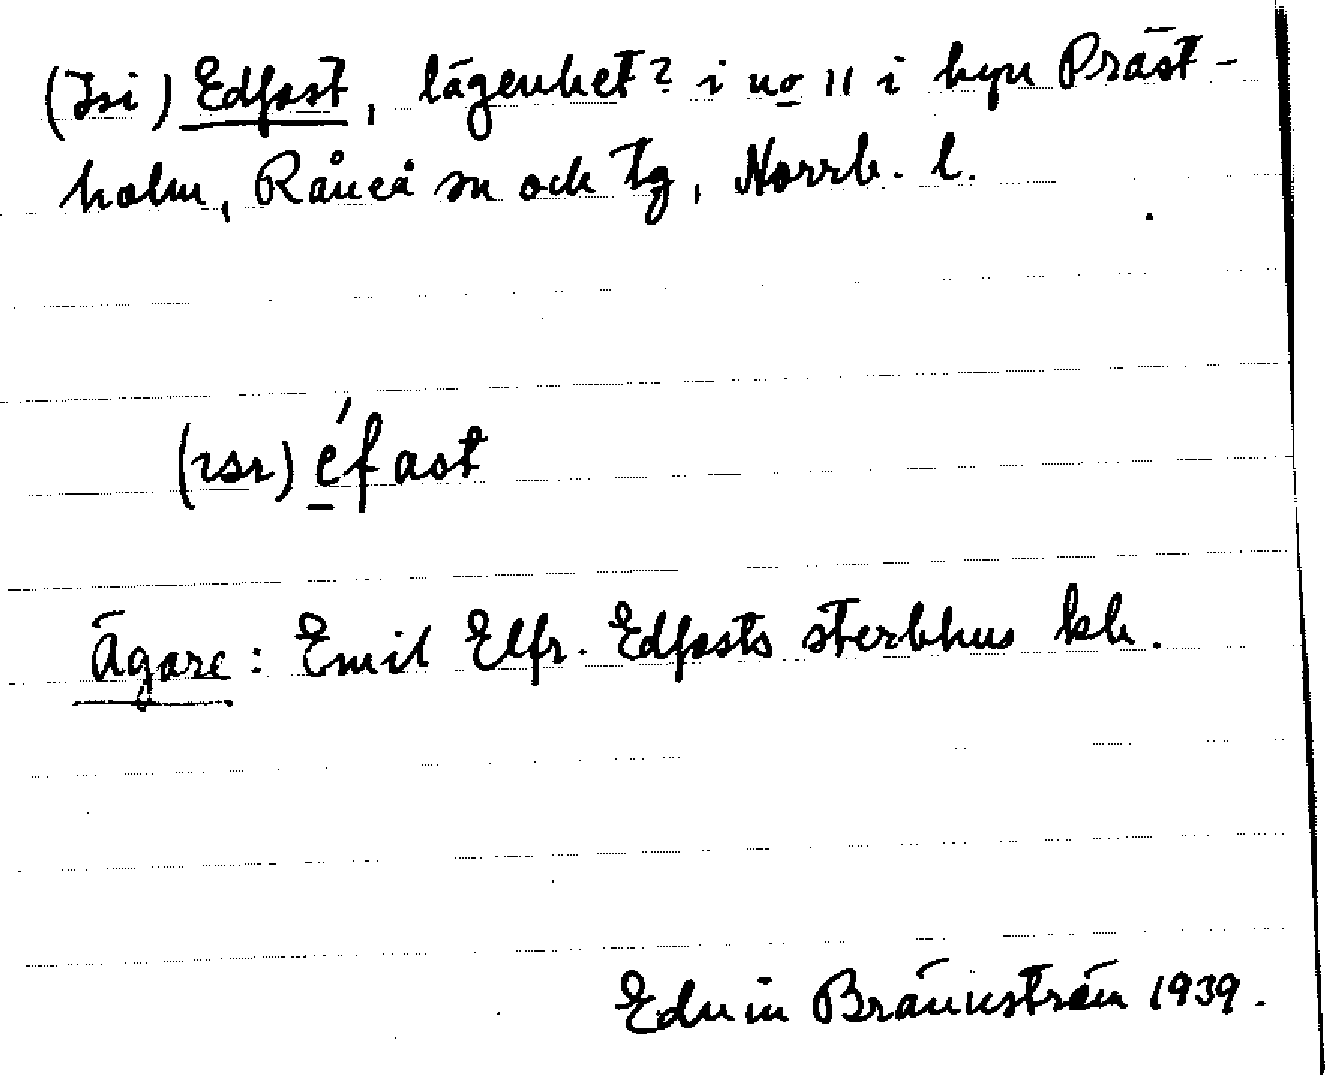 (Isi) Edfast, lägenhet? i no 11 i byn Präst-
holm, Råneå sn och tg, Norrb. l.
(rsr) éfast
Ägare: Emil Elfr. Edfasts sterbhus kb.
Edvin Brännström 1939.